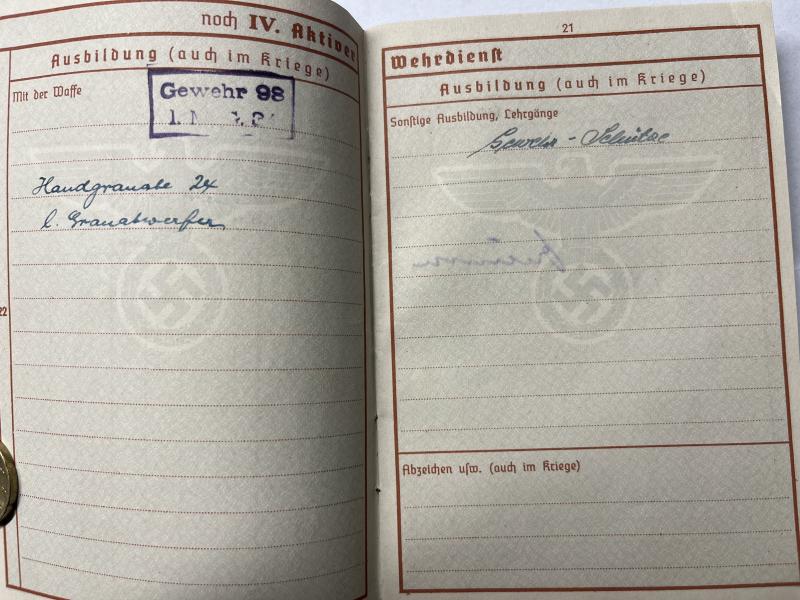 noch IV. Aktiver
Ausbildung (auch im Kriege)
Mit der Waffe
Gewehr 98
Handgranate 24
l. Granatwerfer
22
21
Wehrdienst
Ausbildung (auch im Kriege)
Sonstige Ausbildung, Lehrgänge
Gewehr-Schütze
Abzeichen usw. (auch im Kriege)